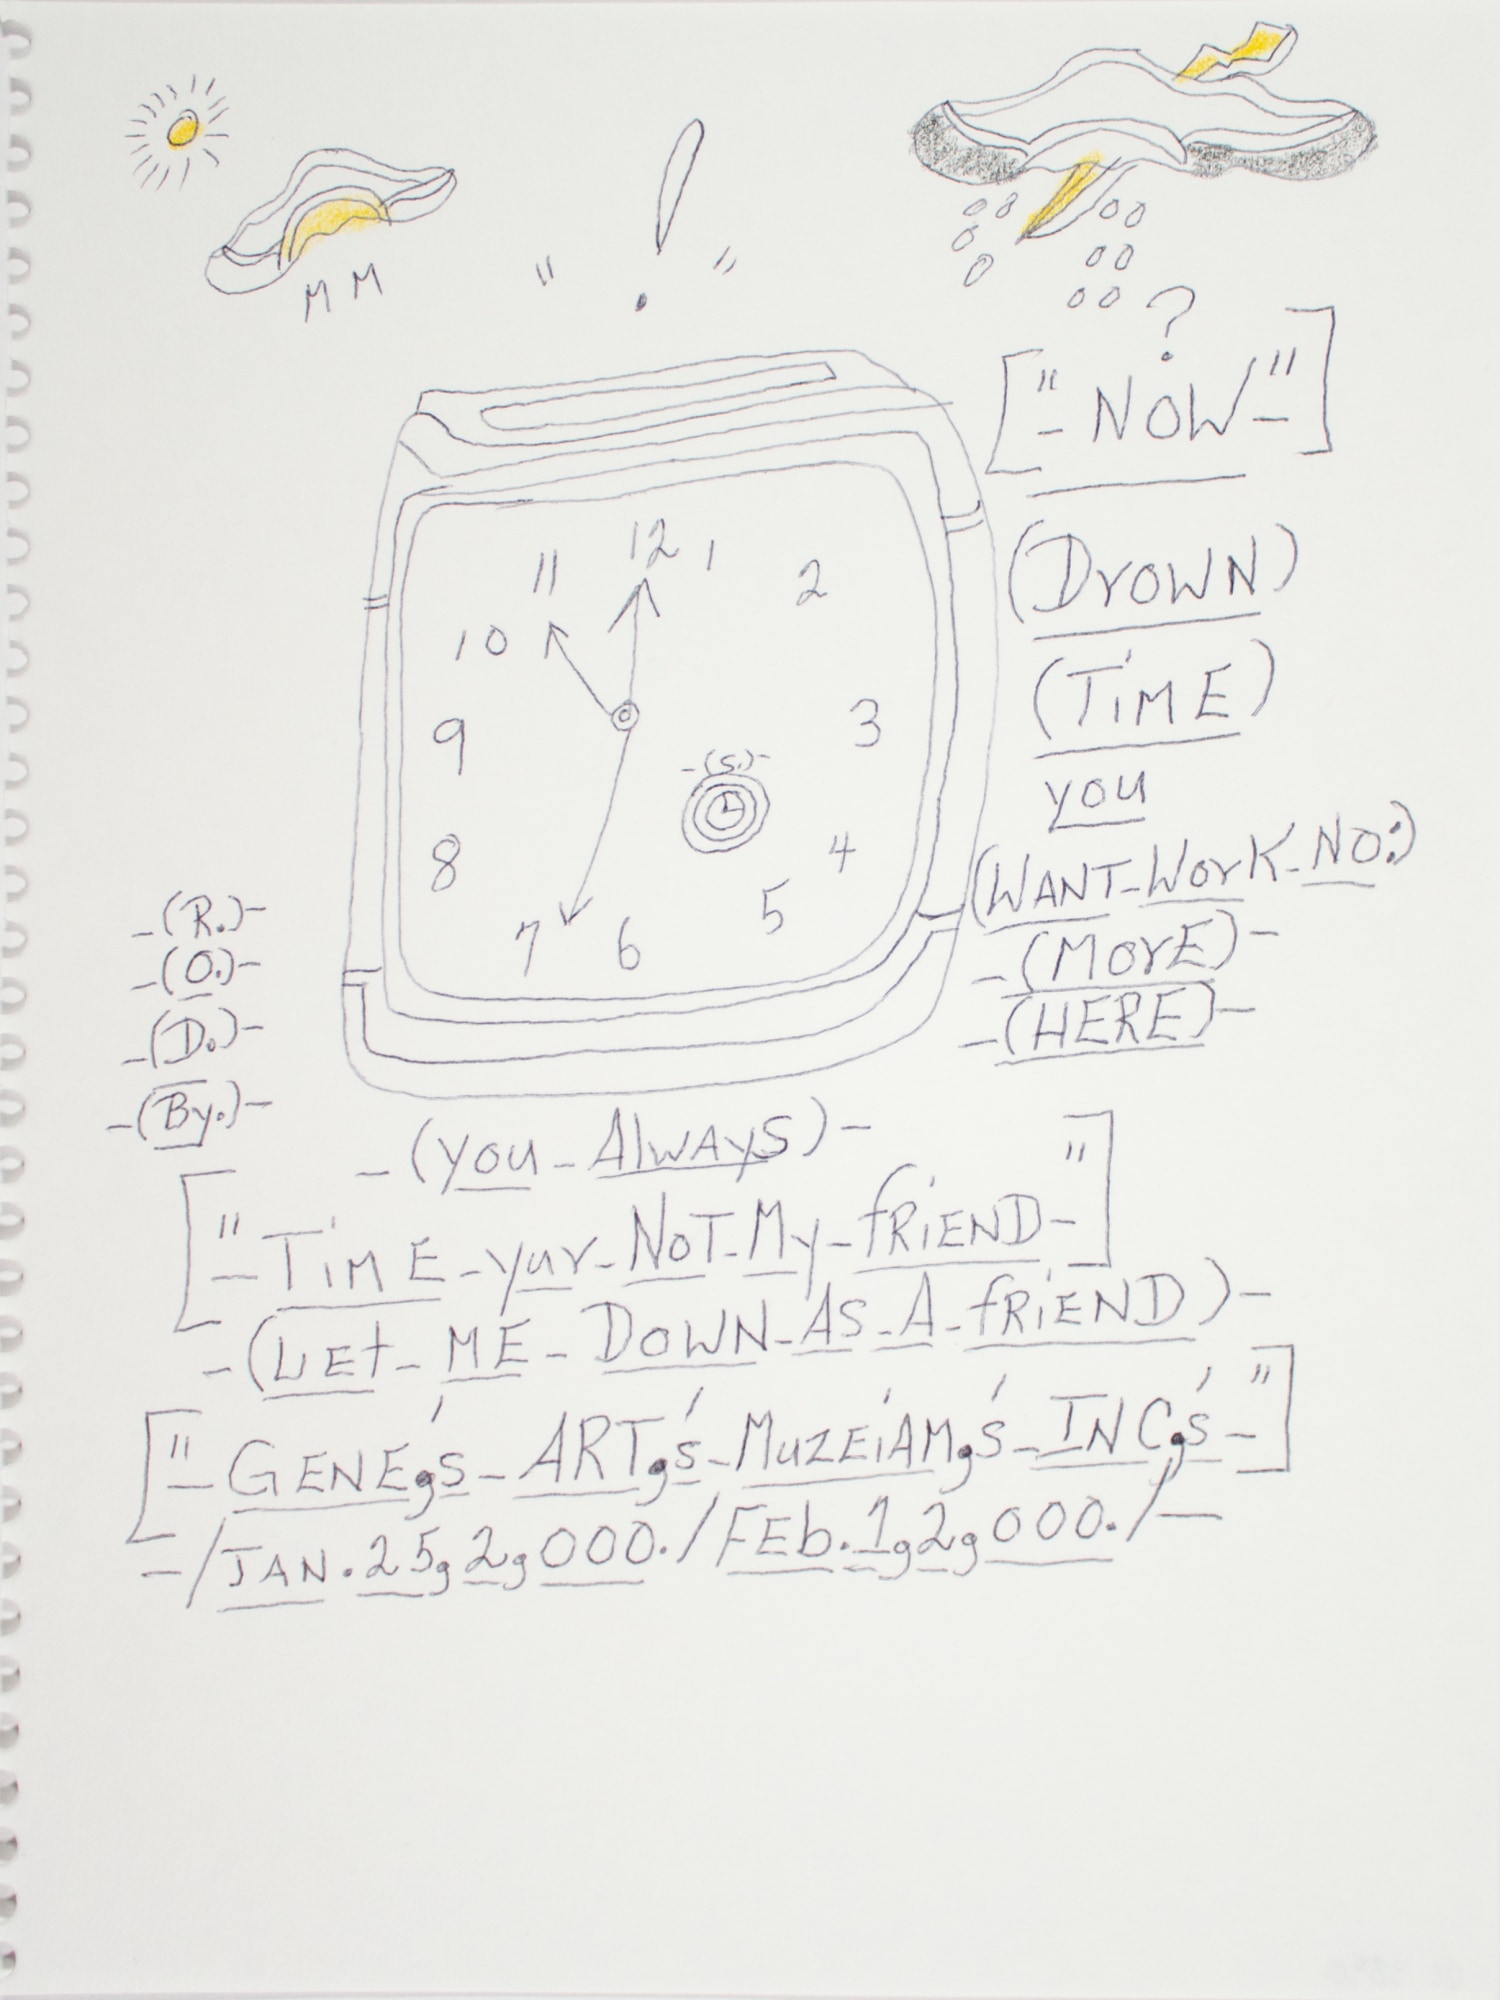 M M
" ! "
?
["-NOW-"]
(DrOWN)
(TiME)
you
(WANT-WOrK-NO:)
-(MOrE)-
-(HERE)-
12
1
2
3
4
5
6
7
8
9
10
11
-(S.)-
-(R.)-
-(O.)-
-(D.)-
-(By.)-
-(yOU-AlWAyS)-
["-TiME-yur-NOT-My-fRiEND-"]
-(LEt-ME-DOWN-AS-A-fRiEND)-
["-GENE,'s-ART,'s-MuZEiAM,'s-INC,'s-"]
-/JAN.25,2,000./FEb.1,2,000./-